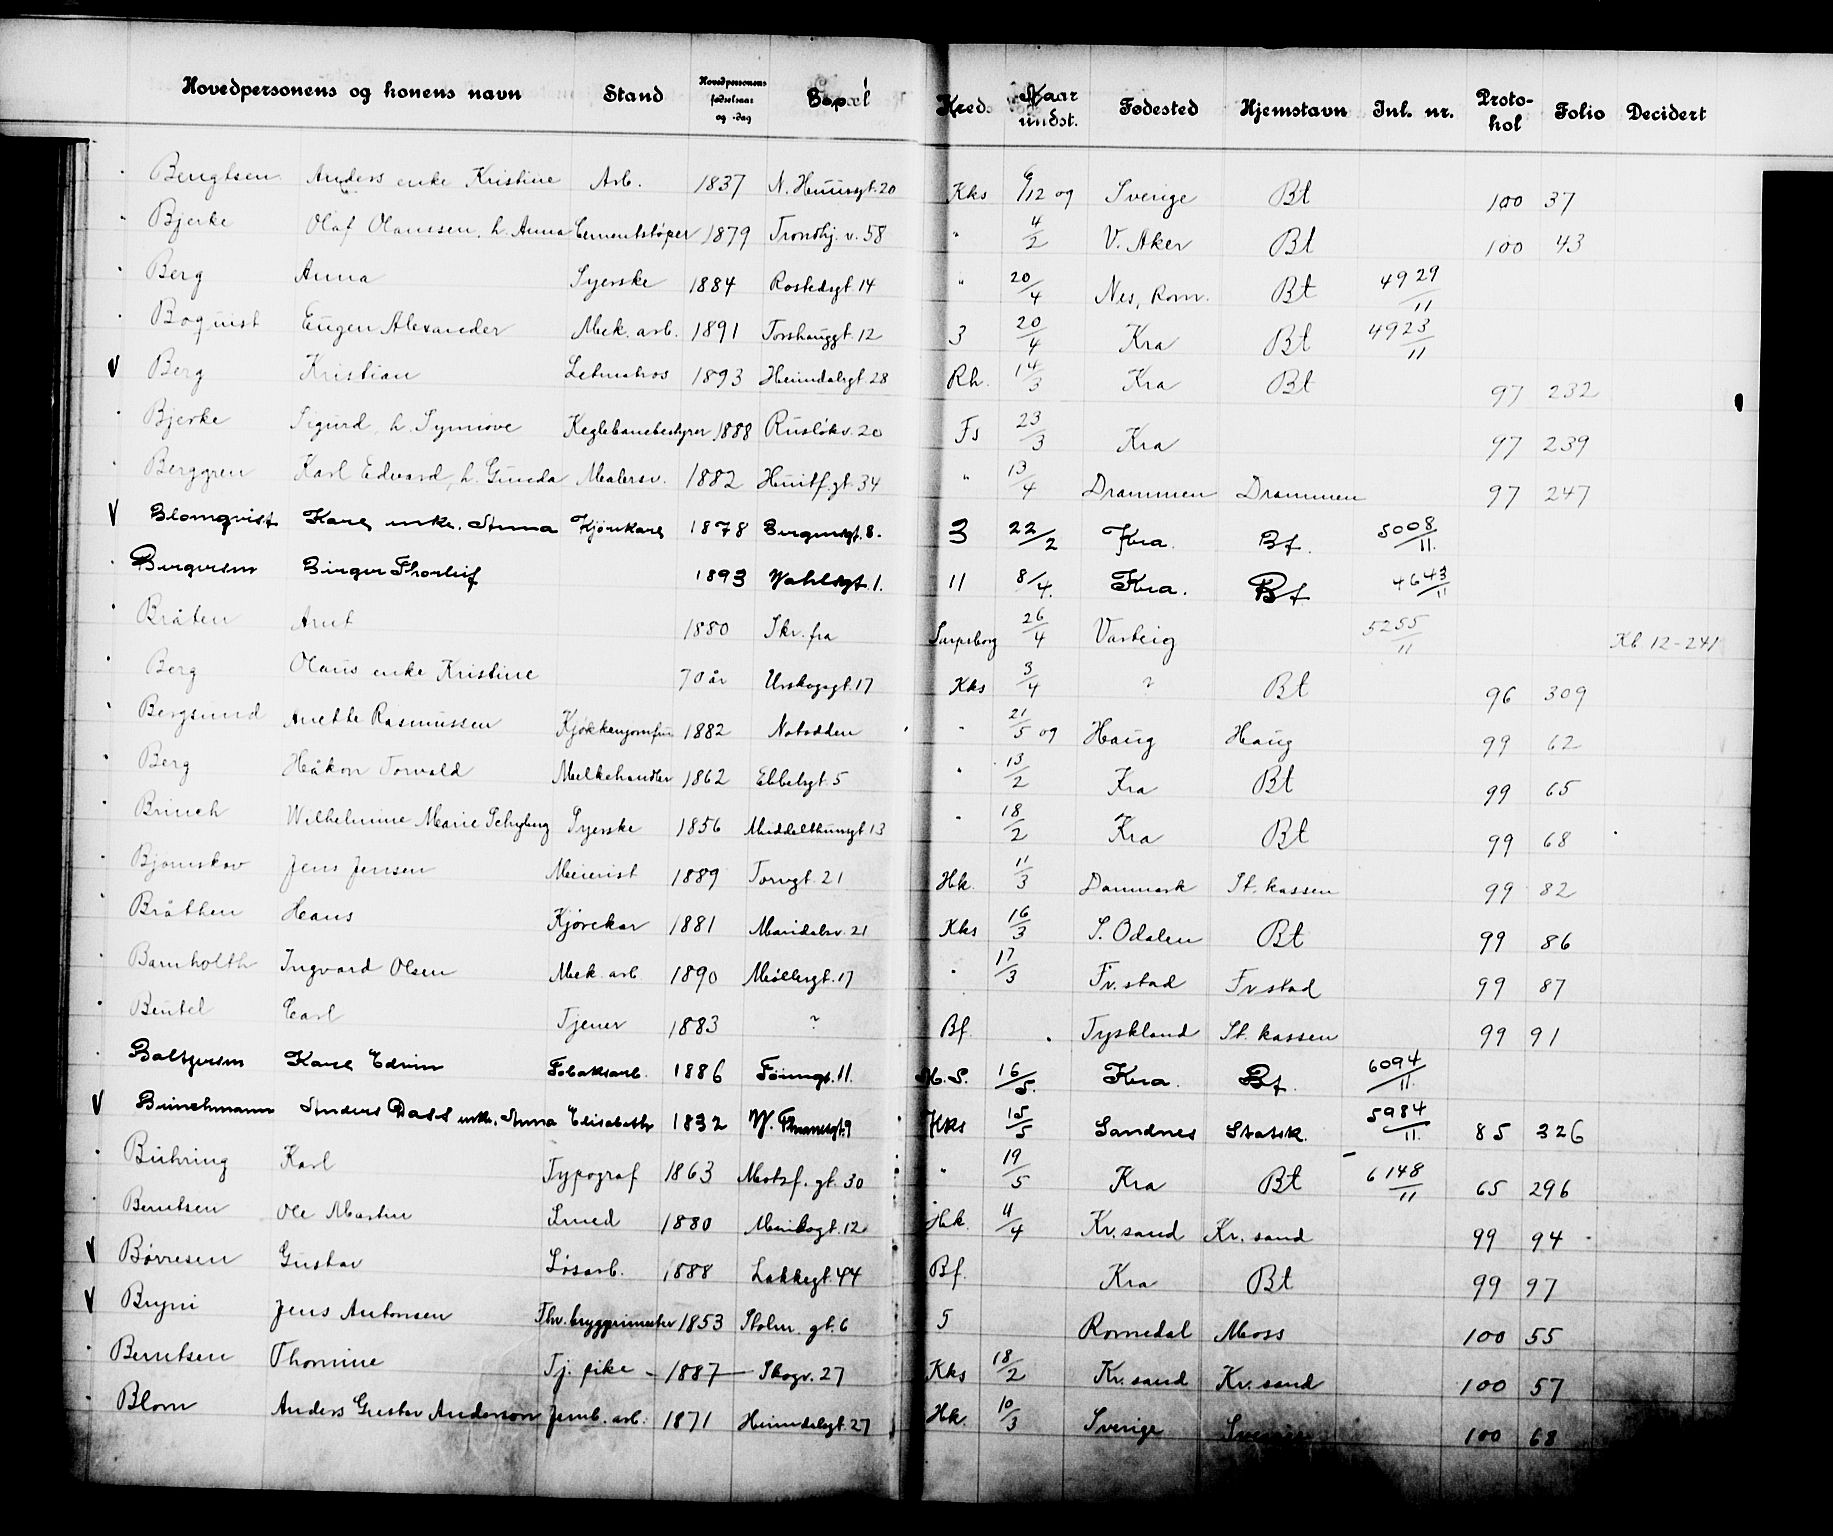 Hovedpersonens og konens navn Stand Hovedpersonens fødselsaar og -dag Bopæl Kreds Naar undst. Fødested Hjemstavn Inl. nr. Protokol Folio Decidert
Bengtsen Anders enke Kristine Arb. 1837 20 Kks 6/12 og Sverige Bt 100 37
Bjerke Olaf Olaussen, h. Anna Cementstøper 1879 Trondhj. v. 58 " 4/2 V. Aker Bt 100 43
Berg Anna Syerske 1884 Rostedsgt 14 " 20/4 Nes, Rom. Bt 4929/11
Boquist Eugen Alexander Mek. arb. 1891 Torshauggt. 12 3 20/4 Kra Bt 4923/11
V Berg Kristian Letmatros 1893 Heimdalsgt 28 Rh. 14/3 Kra Bt 97 232
Bjerke Sigurd, h. Synnøve Keglebanebestyrer 1888 Rusløkv. 20 Fs 23/3 Kra 97 239
Berggren Karl Edvard, h. Gunda Malersv. 1882 Huitf. gt. 34 " 13/4 Drammen Drammen 97 247
V Blomqvist Karl, enke. Anna Kjørekarl 1878 8. 3 22/2 Kra. Bt. 5008/11.
Birger Thorleif 1893 Wahlsgt. 1. 11 8/4. Kra. Bt 4643/11
Bråten Arnt 1880 Skr. fra Sarpsborg 26/4 Varteig 5255/11 Kb. 12-241
Berg Olaus enke Kristine 70 år Urskogsgt. 17 Kks 3/4 ? Bt 96 309
Bergsund Anette Rasmussen Kjøkkenjomfru 1882 Notodden " 21/5 og Haug Haug 99 62
Berg Håkon Torvald Melkehandler 1862 Ebbelsgt. 5 " 13/2 Kra Bt 99 65
Brinch Wilhelmine Marie Syerske 1856 Middelthunsgt 13 " 18/2 Kra Bt 99 68
Bjørnskov Jens Jensen Meierist 1889 Torvgt. 21 Hk. 11/3 Danmark St. kassen 99 82
Bråthen Hans Kjørekar 1881 Maridalsv. 21 Kks 16/3 S. Odalen Bt 99 86
Barnholth Ingvard Olsen Mek. arb 1890 Møllergt. 17 " 17/3 Fr. stad Fr. stad 99 87
Beutel Carl Tjener 1883 ? Bf. Tyskland St. kassen 99 91
Karl Edvin Tobaksarb. 1886 11. M. S. 16/5. Kra. Bt. 6094/11.
V Brinchmann Anders Dass enke, Anna Elisabeth 1832 9 Kks 15/5 Sandnes Statsk. 5984/11. 85 326
Buhring Karl Typograf 1863 Motzf. gt. 30 " 19/5 Kra Bt 6148/11 65 296
Berntsen Ole Martin Smed 1880 12 Hk. 11/4 Kr. sand Kr. sand 99 94
V Børresen Gustav Løsarb. 1888 Lakkegt. 44 Bf. Kra Bt 99 97
V Bryni Jens Antonsen Fhv. bryggerimester 1853 Stolm. gt. 6 5 Romedal Moss 100 55
Berntsen Thomine Tj. pike 1887 Skogv. 27 Kks 18/2 Kr. sand Kr. sand 100 57
Blom Anders Gustav Anderson Jernb. arb. 1871 Heimdalsgt. 27 Hk. 10/3 Sverige Sverige 100 68